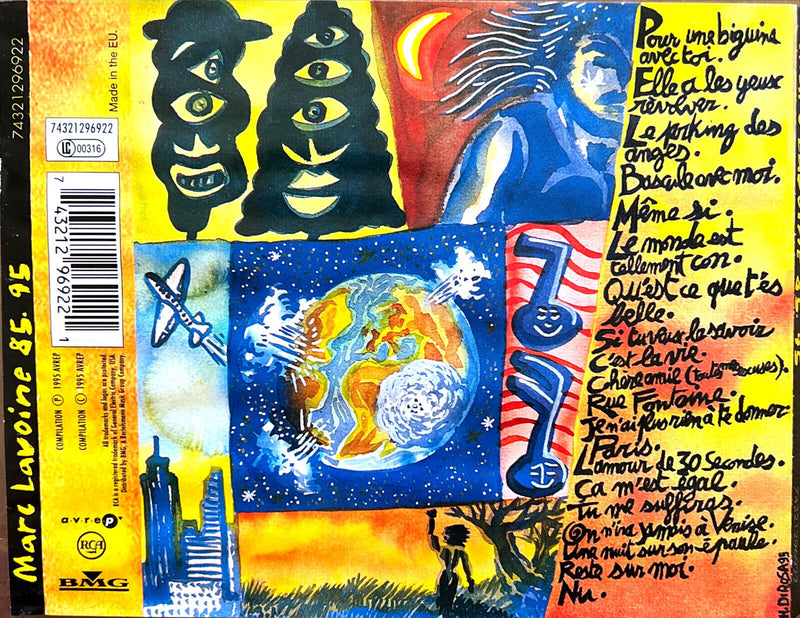 Marc Lavoine 85.95
74321296922
Made in the EU.
74321296922
LC 00316
7 43212 96922 1
COMPILATION Ⓟ 1995 AVREP
COMPILATION Ⓒ 1995 AVREP
All trademarks and logos are protected.
RCA is a registered trademark of General Electric Company, USA
Distributed by BMG. A Bertelsmann Music Group Company.
avrep
RCA
BMG
Pour une biguine
avec toi.
Elle a les yeux
révolver.
Le parking des
anges.
Bascule avec moi.
Même si.
Le monde est
tellement con.
Qu'est ce que t'es
belle.
Si tu veux le savoir
C'est la vie.
Chère amie (toutes mes excuses).
Rue Fontaine.
Je n'ai plus rien à te donner
Paris.
L'amour de 30 Secondes.
Ça m'est égal.
Tu me suffiras.
On n'ira jamais à Venise.
Une nuit sur son épaule.
Reste sur moi.
Nu.
M.DI ROSA 95